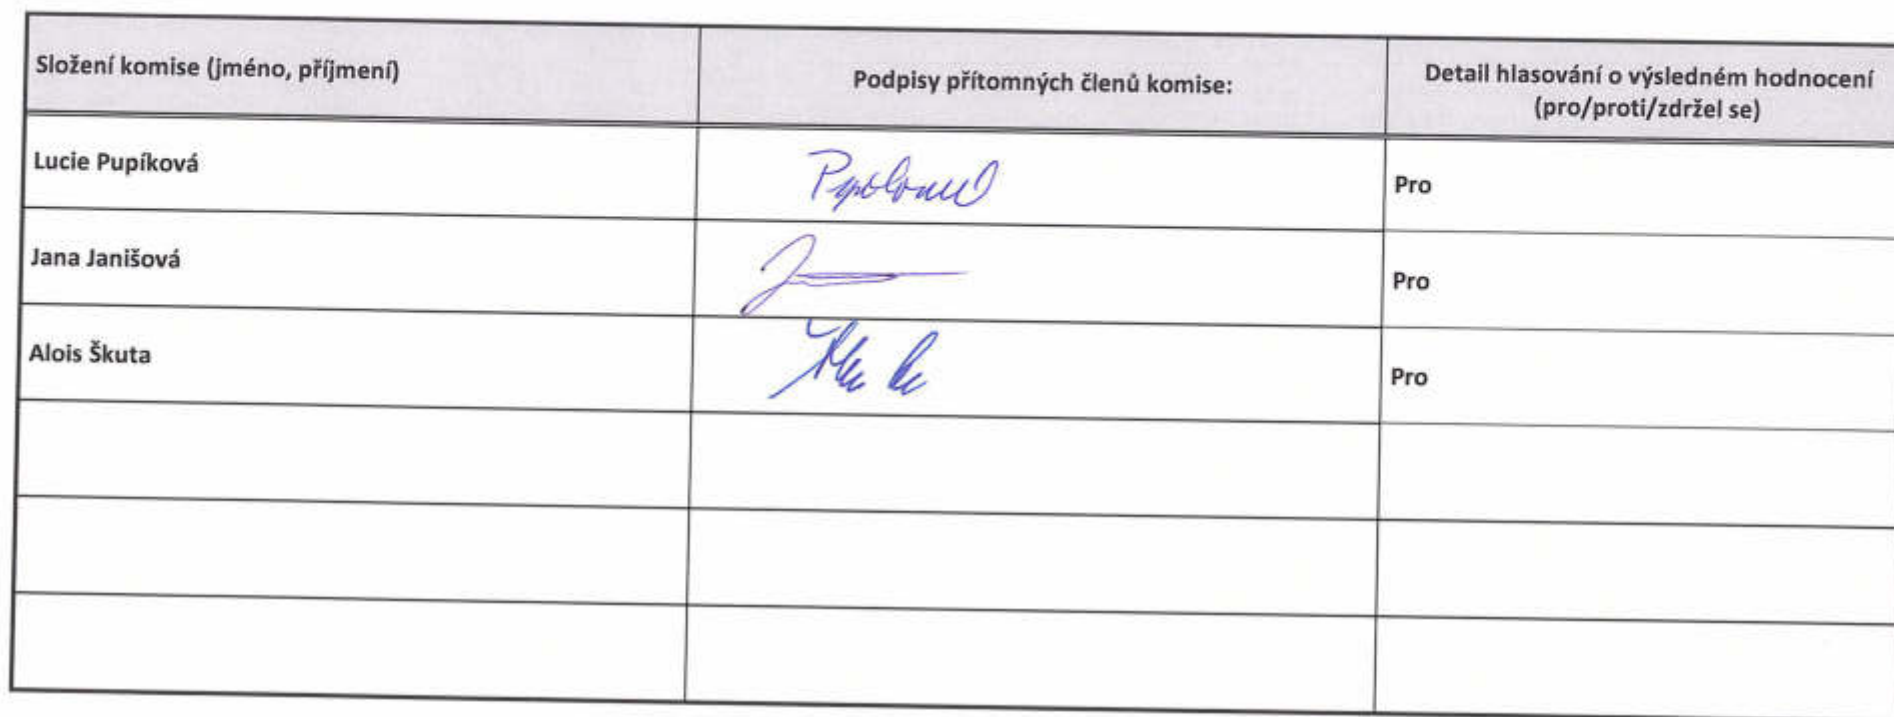 Složení komise (jméno, příjmení)
Podpisy přítomných členů komise:
Detail hlasování o výsledném hodnocení
(pro/proti/zdržel se)
Lucie Pupíková
Pro
Jana Janišová
Pro
Alois Škuta
Pro